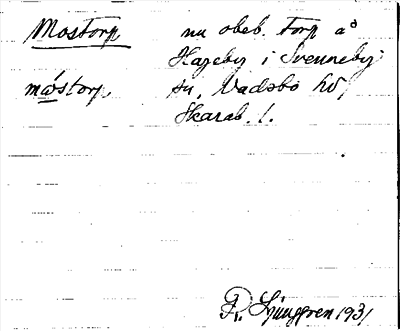 Mostorp nu obeb. torp å
Hageby i Svenneby
mostorp sn, Vadsbo hd,
Skarab. l.
R. Ljunggren 1931